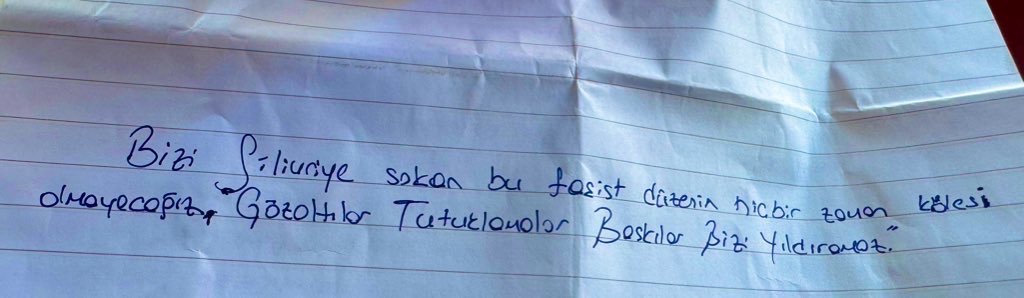 Bizi Siliuriye sokan bu fasist düzenin hicbir zaman kölesi
olmayecağız, Gözaltılar Tutuklamalar Baskılar Bizi Yıldıramaz."